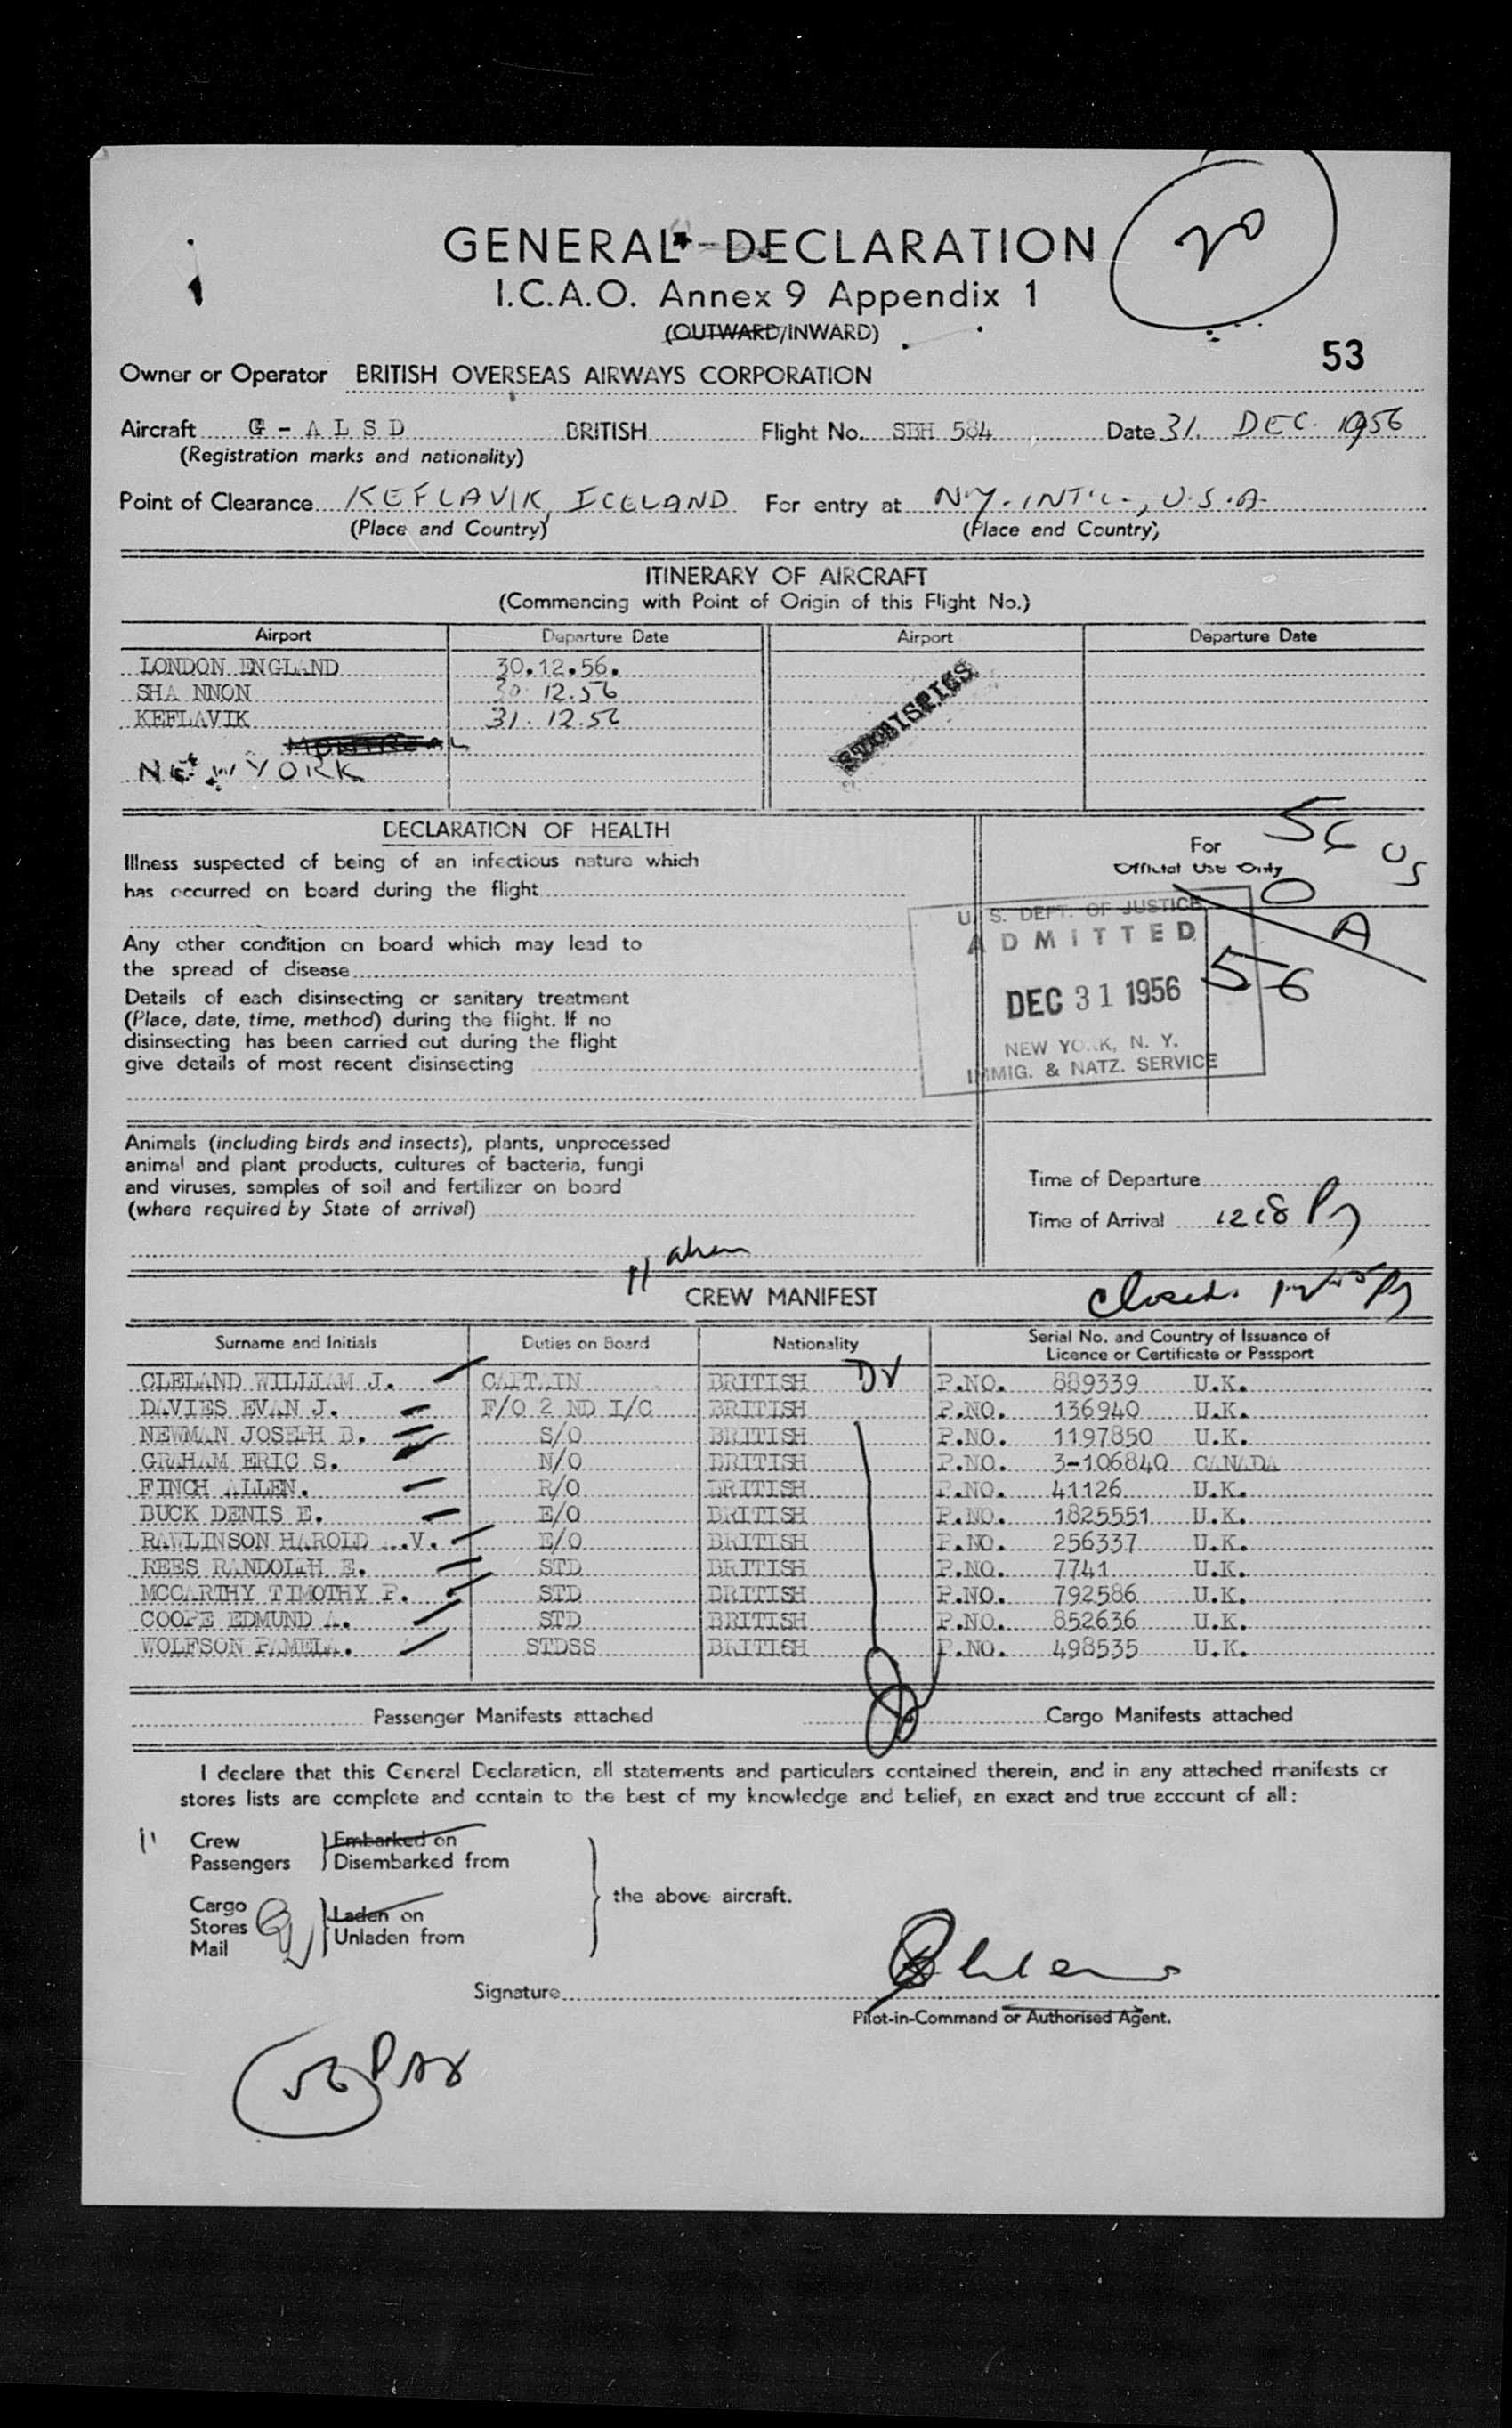 20
GENERAL DECLARATION
I.C.A.O. Annex 9 Appendix 1
(OUTWARD/INWARD)
53
Owner or Operator BRITISH OVERSEAS AIRWAYS CORPORATION
Aircraft G - A L S D BRITISH Flight No. SBH 584 Date 31. DEC. 1956
(Registration marks and nationality)
Point of Clearance KEFLAVIK, ICELAND For entry at N.Y. INT'L., U.S.A.
(Place and Country) (Place and Country)
ITINERARY OF AIRCRAFT
(Commencing with Point of Origin of this Flight No.)
Airport Departure Date Airport Departure Date
LONDON ENGLAND 30.12.56.
SHA NNON 30.12.56
KEFLAVIK 31.12.56
STATISTICS
MONTREAL
NEW YORK
DECLARATION OF HEALTH
Illness suspected of being of an infectious nature which
has occurred on board during the flight
Any other condition on board which may lead to
the spread of disease
Details of each disinsecting or sanitary treatment
(Place, date, time, method) during the flight. If no
disinsecting has been carried out during the flight
give details of most recent disinsecting
For
Official Use Only
56 US
0 A
56
U. S. DEPT. OF JUSTICE
ADMITTED
DEC 31 1956
NEW YORK, N. Y.
IMMIG. & NATZ. SERVICE
Animals (including birds and insects), plants, unprocessed
animal and plant products, cultures of bacteria, fungi
and viruses, samples of soil and fertilizer on board
(where required by State of arrival)
Time of Departure
Time of Arrival 1218 PM
11 alien
CREW MANIFEST
Closed.
Surname and Initials Duties on Board Nationality Serial No. and Country of Issuance of
Licence or Certificate or Passport
CLELAND WILLIAM J. CAPTAIN BRITISH DV P.NO. 889339 U.K.
DAVIES EVAN J. F/O 2 ND I/C BRITISH P.NO. 136940 U.K.
NEWMAN JOSEPH B. S/O BRITISH P.NO. 1197850 U.K.
GRAHAM ERIC S. N/O BRITISH P.NO. 3-106840 CANADA
FINCH ALLEN. R/O BRITISH P.NO. 41126 U.K.
BUCK DENIS E. E/O BRITISH P.NO. 1825551 U.K.
RAWLINSON HAROLD V. E/O BRITISH P.NO. 256337 U.K.
REES RANDOLPH E. STD BRITISH P.NO. 7741 U.K.
MCCARTHY TIMOTHY P. STD BRITISH P.NO. 792586 U.K.
COOPE EDMUND A. STD BRITISH P.NO. 852636 U.K.
WOLFSON PAMELA. STDSS BRITISH P.NO. 498535 U.K.
Passenger Manifests attached Cargo Manifests attached
I declare that this General Declaration, all statements and particulars contained therein, and in any attached manifests or
stores lists are complete and contain to the best of my knowledge and belief, an exact and true account of all:
11 Crew Embarked on
Passengers Disembarked from
the above aircraft.
Cargo Laden on
Stores
Unladen from
Mail
Signature
Pilot-in-Command or Authorised Agent.
56 PAX